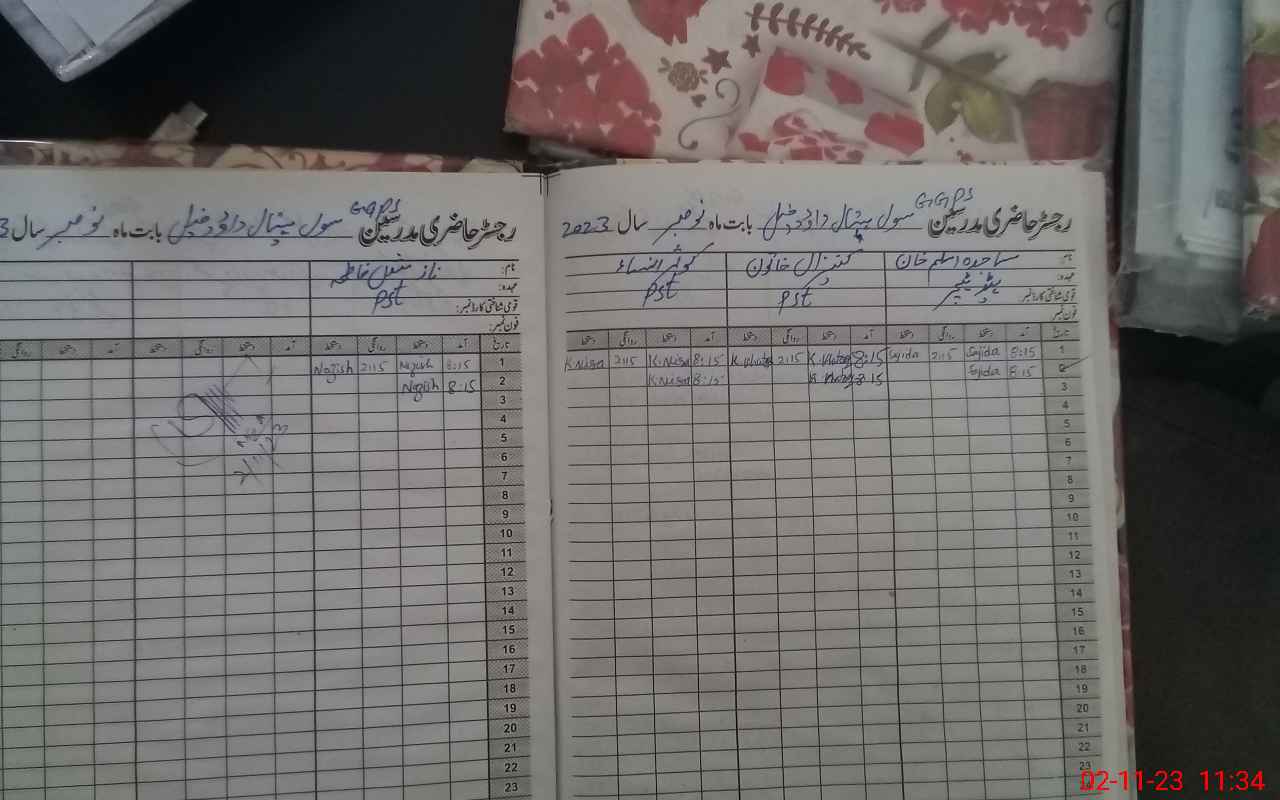 GGPS
رجسٹر حاضری مدرسین سول ہسپتال داؤد خیل بابت ماہ نومبر سال 2023
نام: ساجدہ اسلم خان کنیزاں خاتون کوثر النساء
عہدہ: ہیڈ ٹیچر PST PST
قومی شناختی کارڈ نمبر:
فون نمبر:
تاریخ آمد دستخط روانگی دستخط آمد دستخط روانگی دستخط آمد دستخط روانگی دستخط
1 8:15 Sajida 2:15 Sajida 8:15 K. Khatoon 2:15 8:15 K.Nisa 2:15 K.Nisa
2 8:15 Sajida 8:15 8:15 K.Nisa
3
4
5
6
7
8
9
10
11
12
13
14
15
16
17
18
19
20
21
22
23
GGPS
رجسٹر حاضری مدرسین سول ہسپتال داؤد خیل بابت ماہ نومبر سال 3
نام: ناز
عہدہ: PST
قومی شناختی کارڈ نمبر:
فون نمبر:
تاریخ آمد دستخط روانگی دستخط آمد دستخط روانگی دستخط آمد دستخط روانگی
1 8:15 Nazish 2:15 Nazish
2 8:15 Nazish
3
4
5
6
7
8
9
10
11
12
13
14
15
16
17
18
19
20
21
22
23
02-11-23 11:34